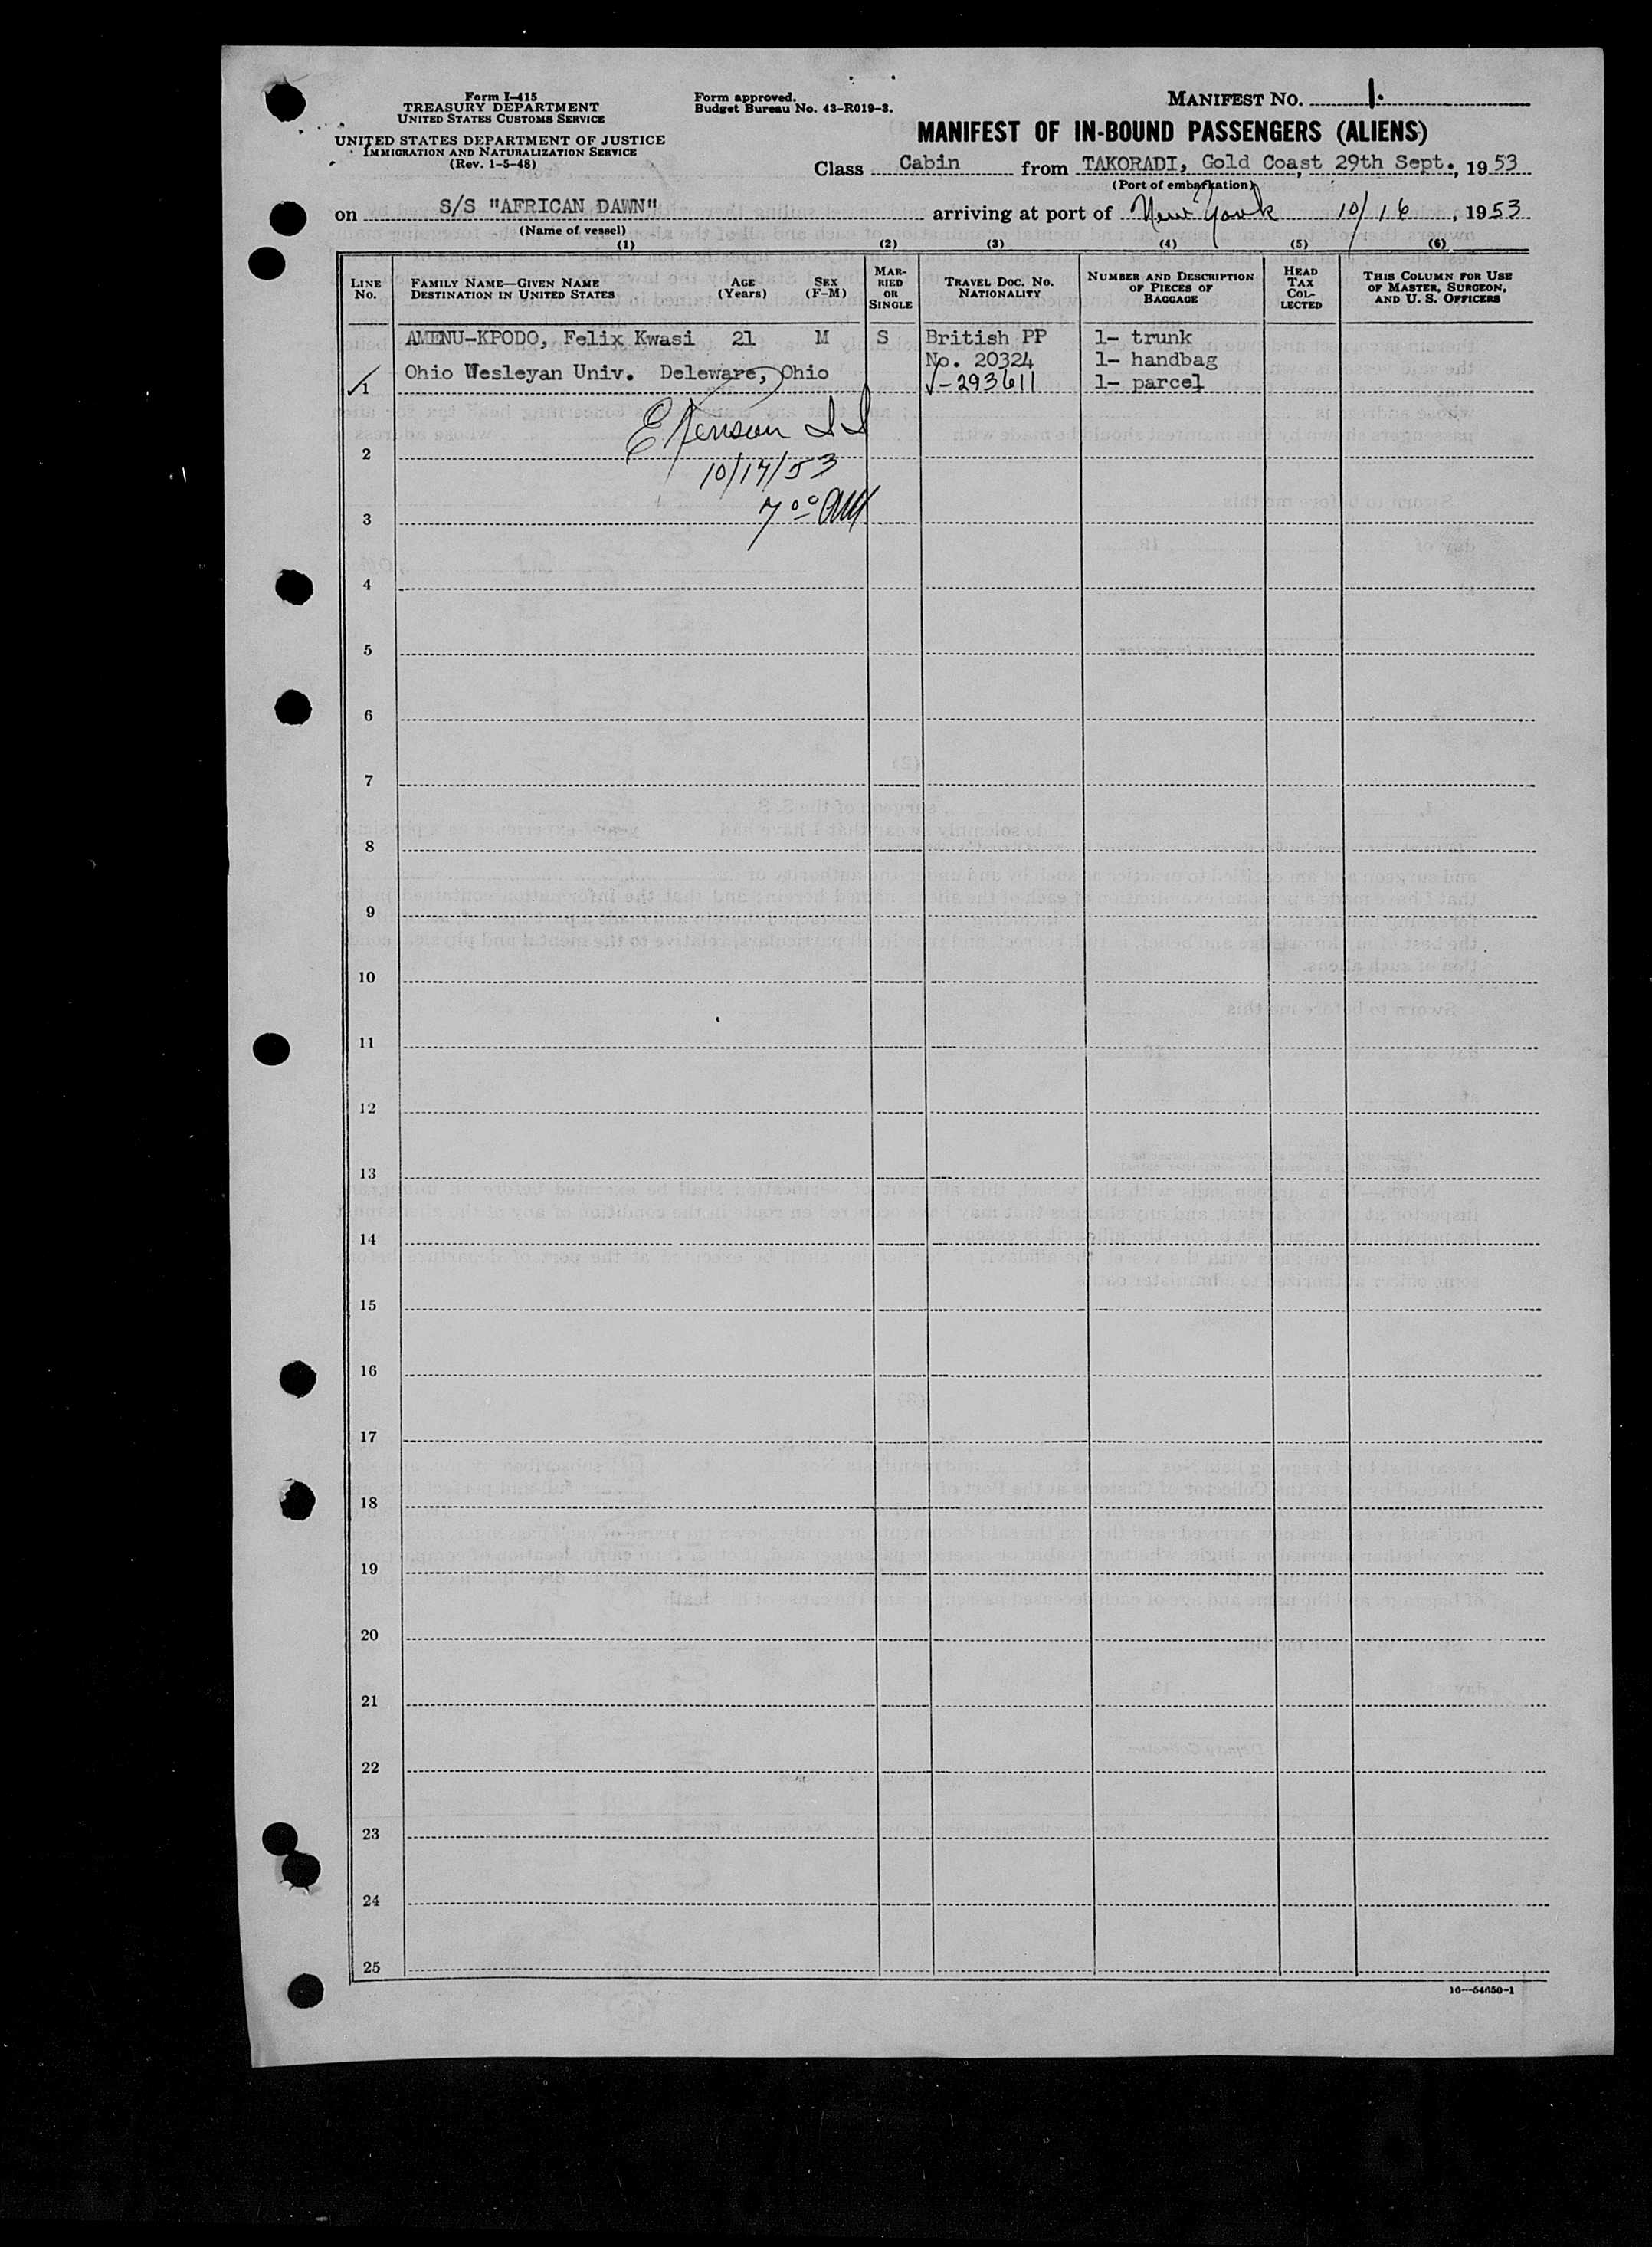 Form I-415
TREASURY DEPARTMENT
UNITED STATES CUSTOMS SERVICE
UNITED STATES DEPARTMENT OF JUSTICE
IMMIGRATION AND NATURALIZATION SERVICE
(Rev. 1-5-48)
Form approved.
Budget Bureau No. 43-R019-3.
MANIFEST NO. 1.
MANIFEST OF IN-BOUND PASSENGERS (ALIENS)
Class Cabin from TAKORADI, Gold Coast, 29th Sept., 1953
(Port of embarkation)
on S/S "AFRICAN DAWN" arriving at port of New York 10/16, 1953
(Name of vessel)
(1) (2) (3) (4) (5) (6)
LINE No.
FAMILY NAME—GIVEN NAME
DESTINATION IN UNITED STATES
AGE
(Years)
SEX
(F-M)
MAR-
RIED
OR
SINGLE
TRAVEL DOC. NO.
NATIONALITY
NUMBER AND DESCRIPTION
OF PIECES OF
BAGGAGE
HEAD
TAX
COL-
LECTED
THIS COLUMN FOR USE
OF MASTER, SURGEON,
AND U. S. OFFICERS
AMENU-KPODO, Felix Kwasi 21 M S British PP 1- trunk
No. 20324 1- handbag
Ohio Wesleyan Univ. Deleware, Ohio
1 V-293611 1- parcel
2
10/17/53
7 00 AM
3
4
5
6
7
8
9
10
11
12
13
14
15
16
17
18
19
20
21
22
23
24
25
16—54650-1